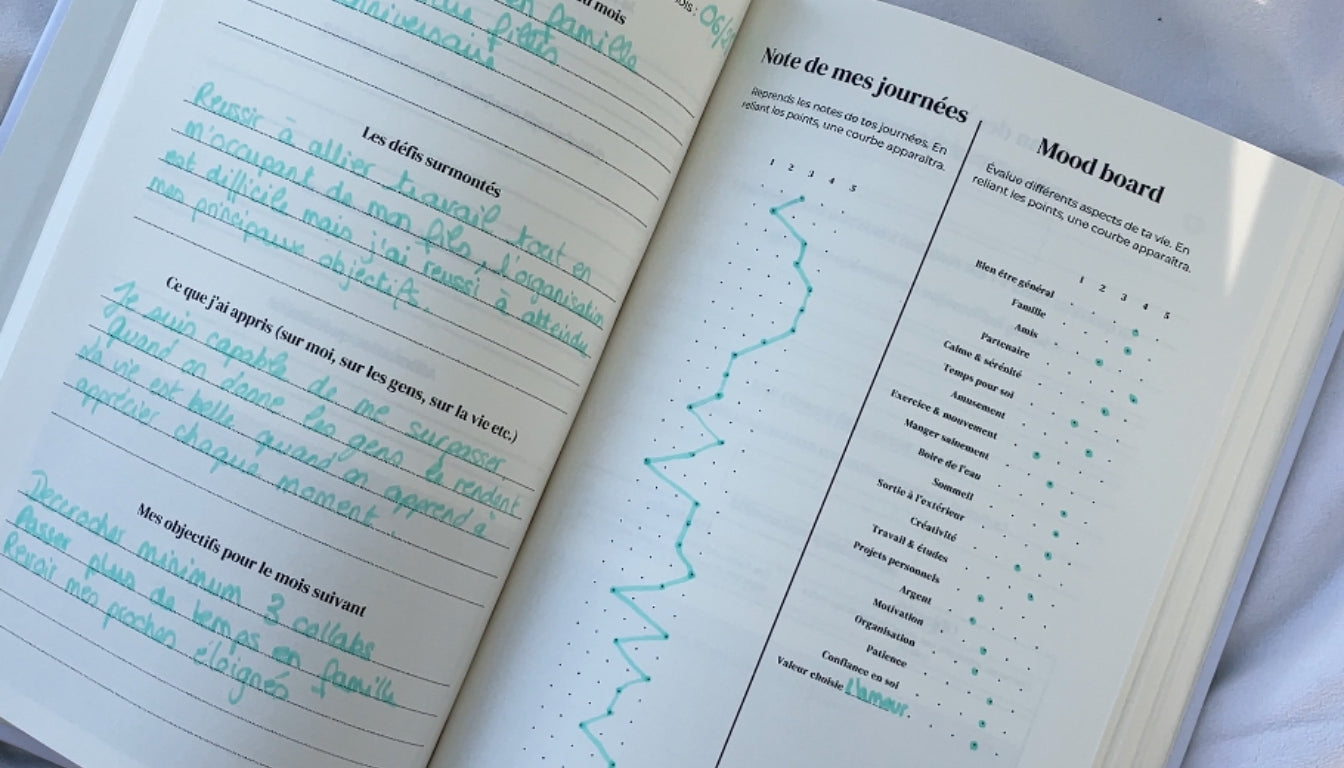 u mois
en famille
fêtes
anniversaire
mois : 06/2
Les défis surmontés
Réussir à allier travail tout en
m'occupant de mon fils, l'organisation
est difficile mais j'ai réussi à atteindre
mes principaux objectifs.
Ce que j'ai appris (sur moi, sur les gens, sur la vie etc.)
Je suis capable de me surpasser,
quand on donne les gens te rendent
la vie est belle quand on apprend à
apprécier chaque moment.
Mes objectifs pour le mois suivant
Décrocher minimum 3 collabs
Passer plus de temps en famille
Revoir mes proches éloignés
Note de mes journées
Reprends les notes de tes journées. En
reliant les points, une courbe apparaîtra.
1 2 3 4 5
Mood board
Évalue différents aspects de ta vie. En
reliant les points, une courbe apparaîtra.
1 2 3 4 5
Bien être général
Famille
Amis
Partenaire
Calme & sérénité
Temps pour soi
Amusement
Exercice & mouvement
Manger sainement
Boire de l'eau
Sommeil
Sortie à l'extérieur
Créativité
Travail & études
Projets personnels
Argent
Motivation
Organisation
Patience
Confiance en soi
Valeur choisie L'amour